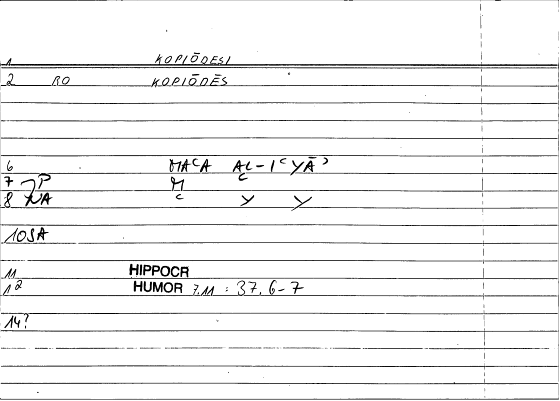 1 KOPIŌDESI
2 RO KOPIŌDĒS
6 MAʿA AL-IʿYĀʾ
7 P M ʿ
8 NA ʿ Y Y
10 SA
11 HIPPOCR
12 HUMOR 7.11 : 37, 6-7
14?